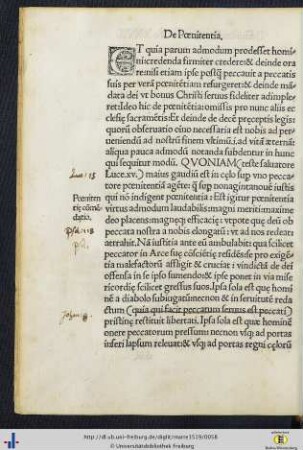 De Pœnitentia,
ET quia parum admodum prodesset homi
ni credenda firmiter credere: & deinde ora
re: nisi etiam ipse postq̃ peccauit a peccatis
suis per verã pœnitẽtiam resurgeret: & deinde mã
data dei vt bonus Christi seruus fideliter adimple
ret: Ideo hic de pœnitẽtia: omissis pro nunc aliis ec
clesię sacramẽtis: Et deinde de decẽ pręceptis legis:
quorũ obseruatio oĩno necessaria est nobis ad per
ueniendũ ad nostrũ finem vltimũ.i, ad vitã æternã:
aliqua pauca admodũ notanda subdentur in hunc
qui sequitur modũ. QVONIAM (teste saluatore
Luce.xv.) maius gaudiũ est in cęlo sup vno pecca
tore pœnitentiã agẽte: q̃ sup nonagintanouẽ iustis
qui nõ indigent pœnitentia: Est igitur pœnitentia
virtus admodum laudabilis: magni meriti: maxime
deo placens: magnęq; efficacię: vtpote que deũ ob
peccata nostra a nobis elongatũ: vt ad nos redeat:
attrahit. Nã iustitia ante eũ ambulabit: qua scilicet
peccator in Arce suę cõsciẽtię residẽs: se pro exigẽ
tia malefactorũ affligit & cruciat: & vindictã de dei
offensa in se ipso sumendo: & ipse ponet in via mise
ricordię scilicet gressus suos. Ipsa sola est que homi
nẽ a diabolo subiugatũ: necnon & in seruitutẽ reda
ctum (quia qui facit peccatum seruus est peccati)
pristinę restituit libertati. Ipsa sola est quæ hominẽ
onere peccatorum pressum: necnon vsq; ad portas
inferi lapsum releuat: & vsq; ad portas regni cęlorũ
Luce .15
Pœniten
tię cõmẽ
datio.
Johan 8.
http://dl.ub.uni-freiburg.de/diglit/marie1519/0058
© Universitätsbibliothek Freiburg